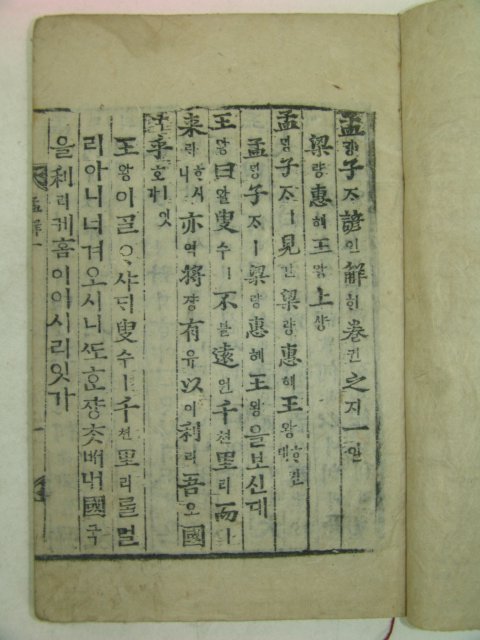 孟ᄆᆡᆼ子ᄌᆞ諺언解ᄒᆡ卷권之지一일
梁량惠혜王왕上샹
孟ᄆᆡᆼ子ᄌᆞㅣ見견梁량惠혜王왕ᄒᆞ신대
孟ᄆᆡᆼ子ᄌᆞㅣ梁량惠혜王왕을보신대
王왕曰왈叟수ㅣ不블遠원千쳔里리而이
來ᄅᆡᄒᆞ시니亦역將쟝有유以이利리吾오國
乎호ㅣ잇가
王왕이ᄀᆞᆯᄋᆞ샤ᄃᆡ叟수ㅣ千쳔里리ᄅᆞᆯ멀
리아니너겨오시니ᄯᅩᄒᆞᆫ쟝ᄎᆞᆺᄡᅥ내國국
을利리케홈이이시리잇가
孟解一